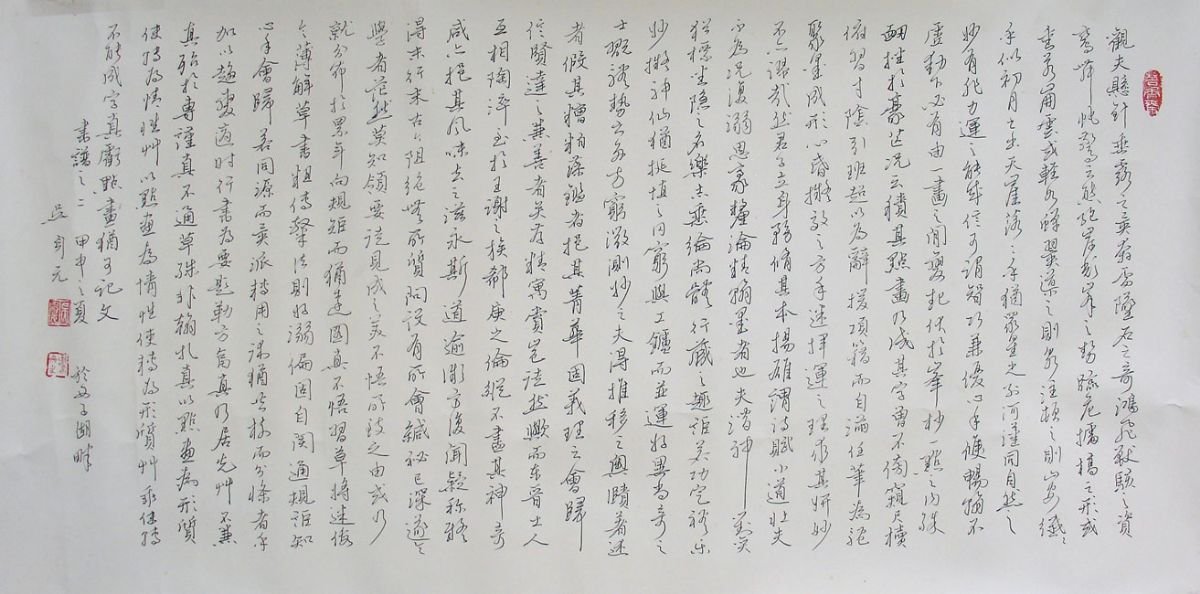 觀夫懸針垂露之異奔雷墜石之奇鴻飛獸駭之資
鸞舞蛇驚之態絕岸頹峯之勢臨危據槁之形或
重若崩雲或輕如蟬翼導之則泉注頓之則山安纖纖
乎似初月之出天崖落落乎猶眾星之列河漢同自然之
妙有非力運之能成信可謂智巧兼優心手雙暢翰不
虛動下必有由一畫之間變起伏於峯杪一點之內殊
衄挫於豪芒況云積其點畫乃成其字曾不傍窺尺牘
俯習寸陰引班超以為辭援項籍而自滿任筆為體
聚墨成形心昏擬效之方手迷揮運之理求其妍妙
不亦謬哉然君子立身務修其本揚雄謂詩賦小道壯夫
不為況復溺思豪釐淪精翰墨者也夫潛神對奕
猶標坐隱之名樂志垂綸尚體行藏之趣詎若功定禮樂
妙擬神仙猶埏埴之罔窮與工鑪而並運好異尚奇之
士翫體勢之多方窮微測妙之夫得推移之奧賾著述
者假其糟粕藻鑑者挹其菁華固義理之會歸
信賢達之兼善者矣存精寓賞豈徒然歟而東晉士人
互相陶淬至於王謝之族郗庾之倫縱不盡其神奇
咸亦挹其風味去之滋永斯道逾微方復聞疑稱疑
得末行末古今阻絕無所質問設有所會緘秘已深遂令
學者茫然莫知領要徒見成功之美不悟所致之由或乃
就分布於累年向規矩而猶遠圖真不悟習草將迷假
令薄解草書粗傳隸法則好溺偏固自閡通規詎知
心手會歸若同源而異派轉用之術猶共樹而分條者乎
加以趨變適時行書為要題勒方畐真乃居先草不兼
真殆於專謹真不通草殊非翰札真以點畫為形質
使轉為情性草以點畫為情性使轉為形質草乖使轉
不能成字真虧點畫猶可記文
書譜之二 甲申之夏 於 子湖畔
吳 元